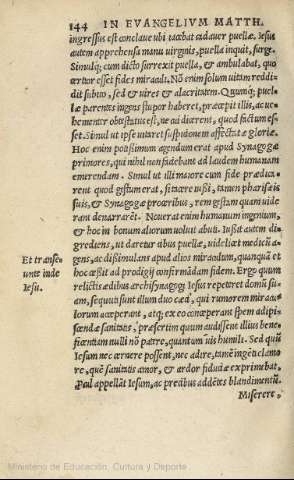 144 IN EVANGELIVM MATTH.
ingressus est conclaue ubi iacebat cadauer puellæ, Iesus
autem apprehensa manu uirginis, puella inquit, surge.
Simulq; cum dicto surrexit puella, & ambulabat, quo
certior esset fides miraculi. Nõ enim solum uitam reddi-
dit subito, sed & uires & alacritatem. Quumq; puel-
læ parentes ingens stupor haberet, præcepit illis, ac ue-
hementer obtestatus est, ne cui dicerent, quod factum es-
set. Simul ut ipse uitaret suspicionem affectatæ gloriæ.
Hoc enim potissimum agendum erat apud Synagogæ
primores, qui nihil non faciebant ad laudem humanam
emerendam. Simul ut illi maiore cum fide prædica-
rent quod gestum erat, si tacere iussi, tamen pharisæis
suis, & Synagogæ proceribus, rem gistam quam uide
rant denarrarēt. Nouerat enim humanum ingenium,
& hoc in bonum aliorum uoluit abuti. Iussit autem di-
grediens, ut daretur cibus puellæ, uidelicet medicū a-
gens, ac dissimulans apud alios miraculum, quanquā et
hoc cessit ad prodigij confirmādam fidem. Ergo quum
Et transe-
unte inde
Iesu.
relictis ædibus archisynagogi Iesus repeteret domū su-
am, sequuti sunt illum duo cæci, qui rumorem miracu
lorum acceperant, atq; ex eo conceperant spem adipi-
scendæ sanitatis, præsertim quum audissent illius bene-
ficentiam nulli nō patere, quantum uis humili. Sed quū
Iesum nec cernere possent, nec adire, tamē ingēti clamo
re, quē sanitatis amor, & ardor fiduciæ exprimebat,
Procul appellāt Iesum, ac precibus addētes blandimentū,
Miserere,
Ministerio de Educación, Cultura y Deporte